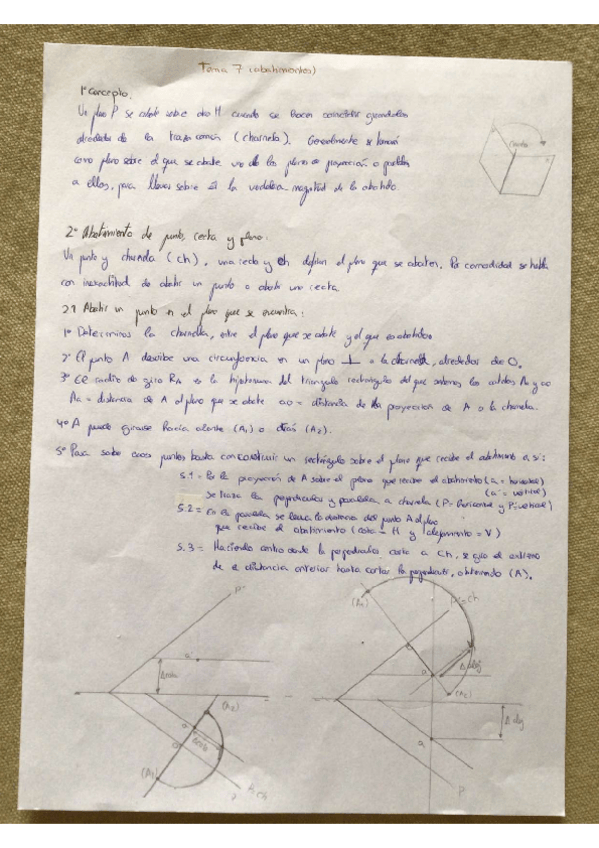 Tema 7 (abatimientos)
1º Concepto.
Un plano P se abate sobre otro H cuando se hacen coincidir girandolos
alrededor de la traza común (charnela). Generalmente se tomará
como plano sobre el que se abate uno de los planos de proyección o paralelos
a ellos, para llevar sobre él la verdadera magnitud de lo abatido
Charnela
2º Abatimiento de punto, recta y plano:
Un punto y charnela (ch), una recta y ch definen el plano que se abaten. Por comodidad se habla
con inexactitud de abatir un punto o abatir una recta.
2.1 Abatir un punto en el plano que se encuentra:
1º Determinamos la charnela, entre el plano que se abate y el que es abatido
2º El punto A describe una circunferencia en un plano ⊥ a la charnela, alrededor de O.
3º El radio de giro RA es la hipotenusa del triangulo rectángulo del que sabemos los catetos Aa y ao
Aa = distancia de A al plano que se abate ao = distancia de la proyeccion de A a la charnela.
4º A puede girarse hacia delante (A1) o atrás (A2).
5º Para saber esos puntos basta con construir un rectángulo sobre el plano que recibe el abatimiento así:
5.1 = Por la proyección de A sobre el plano que recibe el abatimiento (a = horizontal)
(a' = vertical)
se traza la perpendicular y paralela a charnela (P = horizontal y P' = vertical)
5.2 = En la paralela se lleva la distancia del punto A al plano
que recibe el abatimiento (cota = H y alejamiento = V)
5.3 = Haciendo centro donde la perpendicular corta a Ch, se gira el extremo
de la distancia anterior hasta cortar la perpendicular, obteniendo (A).
P'
a'
(A2)
a
O
(A1)
(A1)
P'=Ch
(A2)
a
P